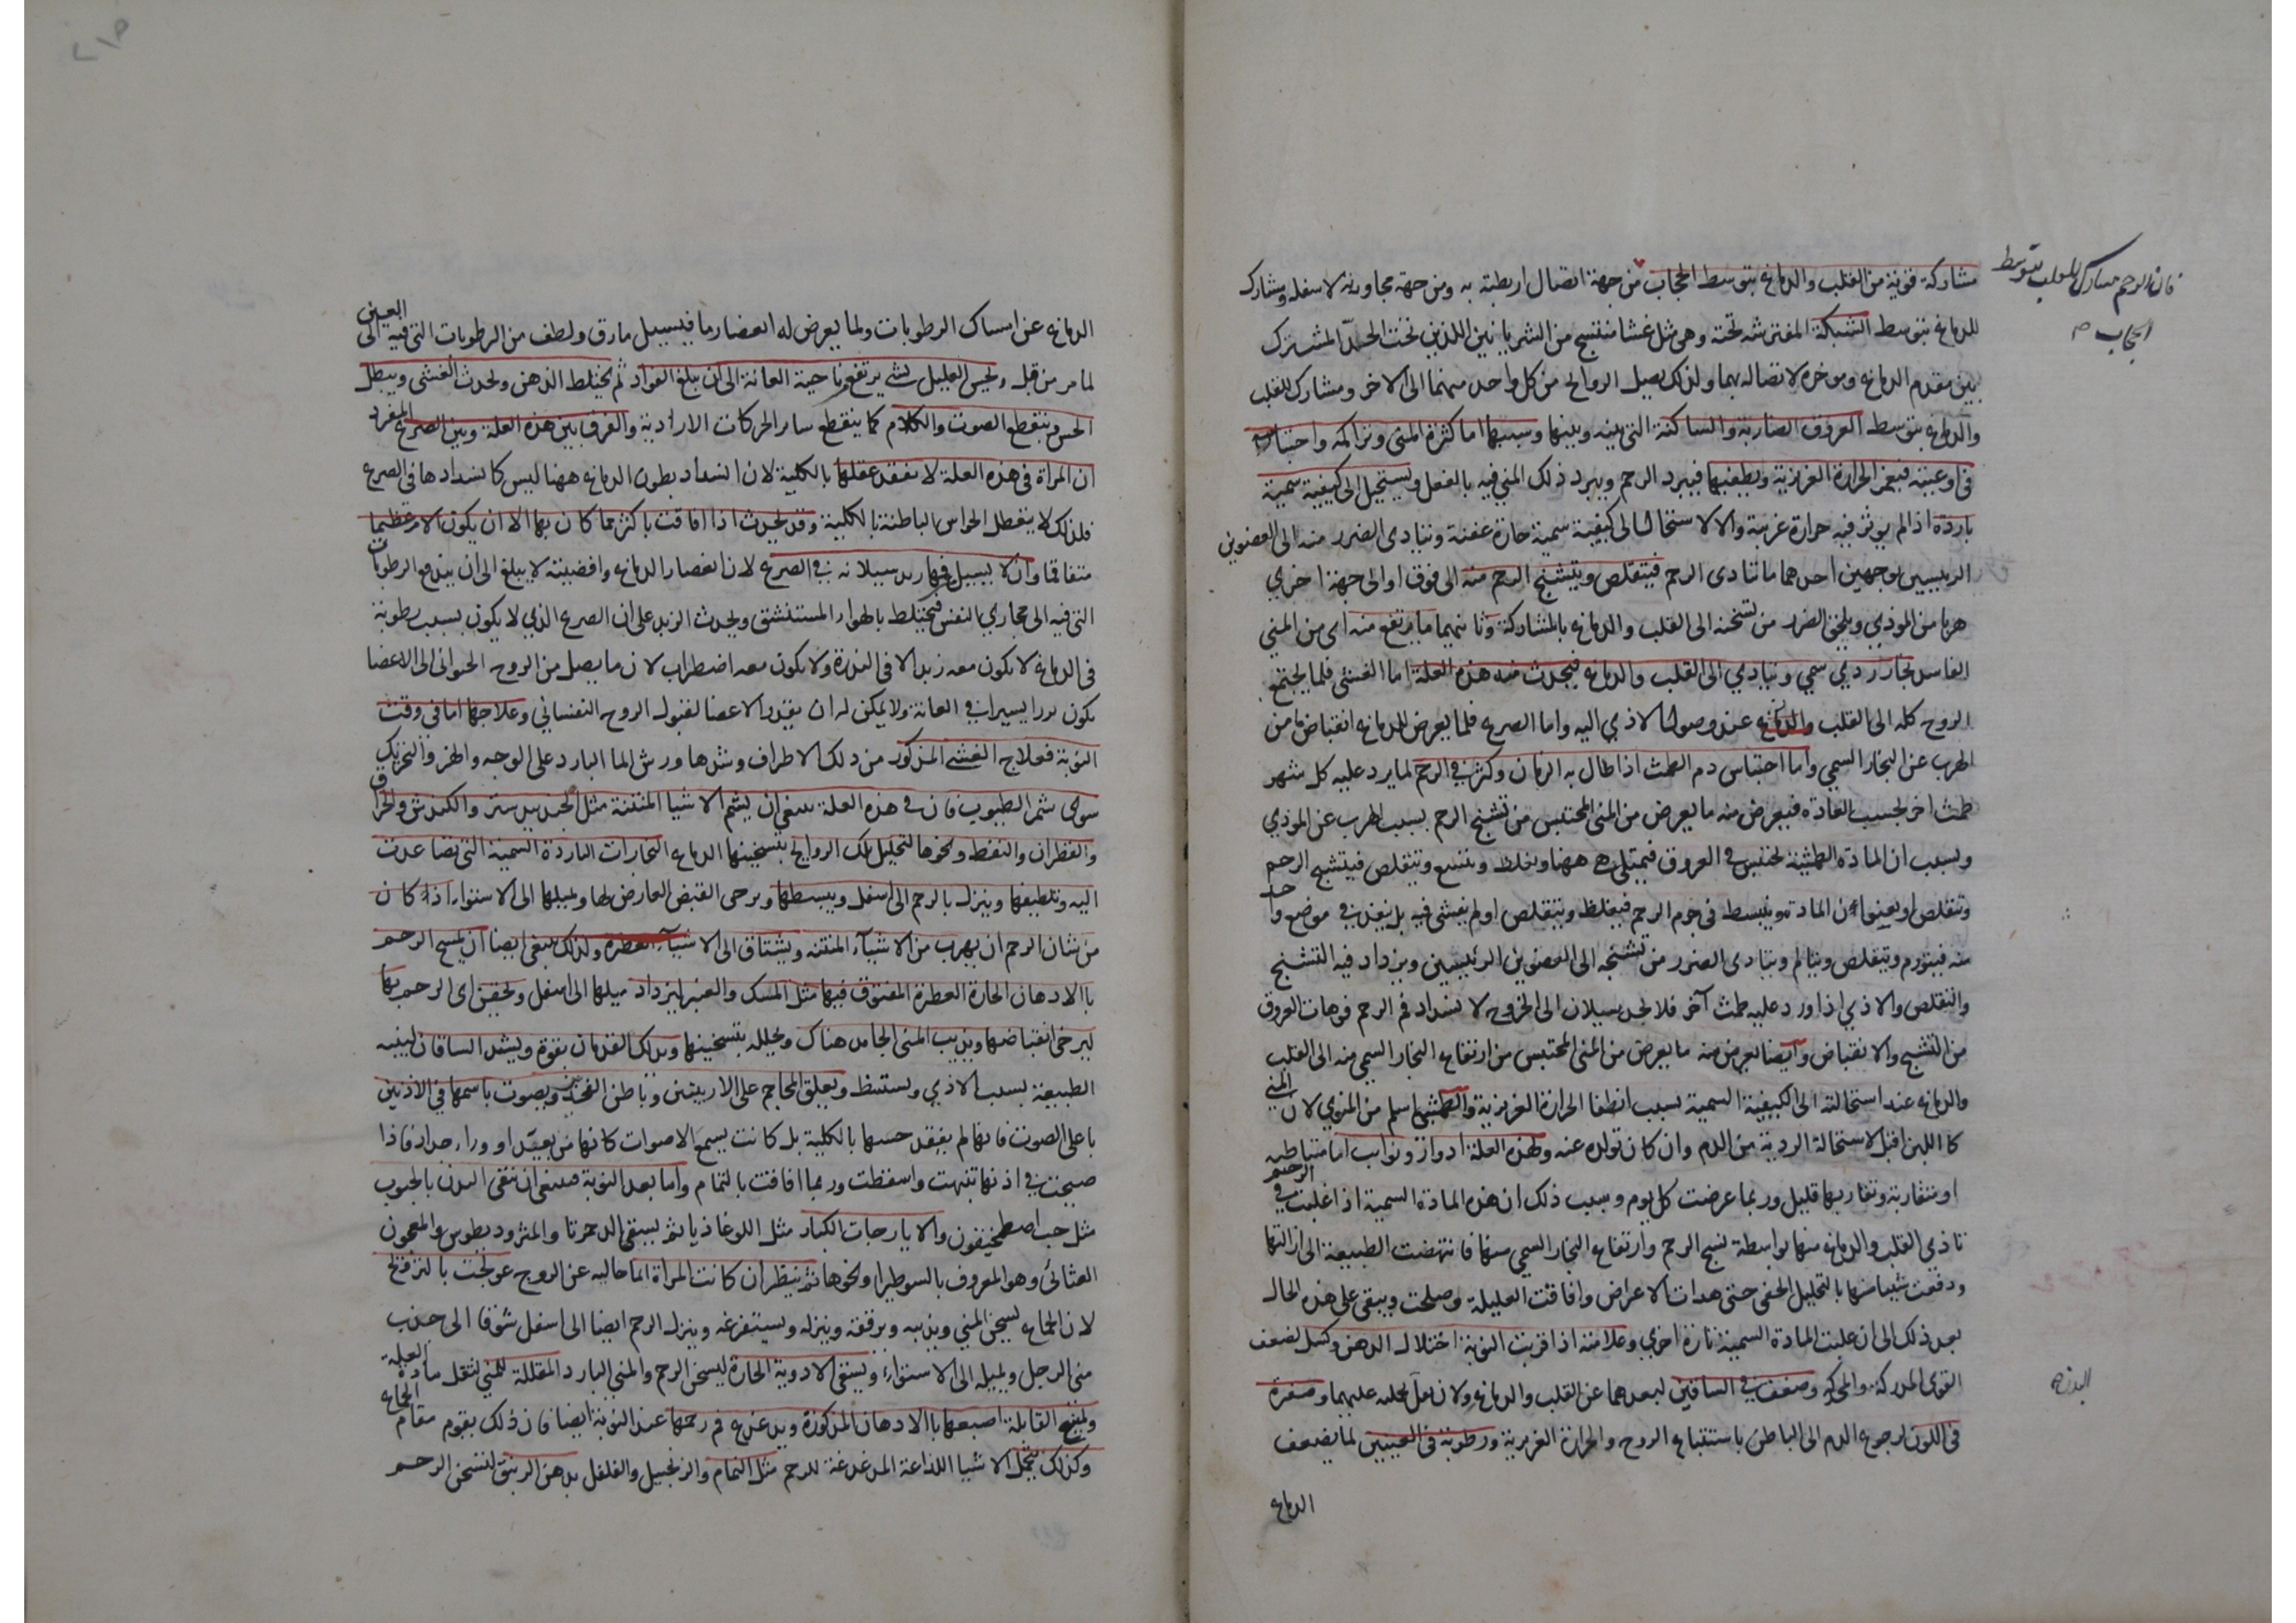 مشاركة قوية من القلب والدماغ بتوسط الحجاب من جهة اتصال اربطته به ومن جهة مجاورته لاسفله ويشارك
فان الرحم مشارك للقلب بتوسط
الحجاب
للدماغ بتوسط الشبكة المفترشة تحته وهى مثل غشا منتسج من الشريانين اللذين تحت الحد المشترك
بين مقدم الدماغ وموخره لاتصاله بهما ولذلك يصل الروايح من كل واحد منهما الى الاخر ومشارك للقلب
والدماغ بتوسط العروق الضاربة والساكنة التى بينه وبينها وسببها اما كثرة المنى وتراكمه واحتباسه
فى اوعيته فيغمر الحرارة الغريزية ويطفيها فيبرد الرحم ويبرد ذلك المنى فيه بالفعل ويستحيل الى كيفية سمية
باردة اذا لم يوثر فيه حرارة غريبة والا لاستحال الى كيفية سمية حارة عفنة ويتادى الضرر منه الى العضوين
الرييسين بوجهين احدهما ما تتادى الرحم فيتقلص ويتشنج الرحم منه الى فوق او الى جهة اخري
هربا من الموذي ويلحق الضرر من تشنجه الى القلب والدماغ بالمشاركة وثانيهما ما يرتفع منه اى من المنى
الفاسد بخار ردي سمي ويتادي الى القلب والدماغ فيحدث منه هذه العلة اما الغشى فلما يجتمع
الروح كله الى القلب والدماغ عند وصول الاذي اليه واما الصرع فلما يعرض للدماغ انقباض من
الهرب عن البخار السمي واما احتباس دم الطمث اذا طال به الزمان وكثر فى الرحم لما يرد عليه كل شهر
طمث اخر بحسب العادة فيعرض منه ما يعرض من المنى المحتبس من تشنج الرحم بسبب الهرب عن الموذي
وبسبب ان المادة الطمثية تحتبس فى العروق فيمتلى ههنا ويغلظ ويتسع ويتقلص فيتشنج الرحم
ويتقلص او لان المادة ينبسط فى جرم الرحم فيغلظ ويتقلص او لم يفش فيه بل ينفذ فى موضع واحد
منه فيتورم ويتقلص ويتالم ويتادى الضرر من تشنجه الى العضوين الرئيسين ويزداد فيه التشنج
والتقلص والاذي اذا ورد عليه طمث آخر فلا يجد سبيلا الى الخروج لانسداد فم الرحم فوهات العروق
من التشنج والانقباض وايضا يعرض منه ما يعرض من المنى المحتبس من ارتفاع البخار السمي منه الى القلب
والدماغ عند استحالته الى الكيفية السمية بسبب انطفا الحرارة الغريزية والطمثى اسلم من المنوي لان المني
كاللبن اقبل لاستحالة الردية من الدم وان كان تولده عنه ولهذه العلة ادوار ونوايب اما متباطيه
او متقاربة وتقاربها قليل وربما عرضت كل يوم وسبب ذلك ان هذه المادة السمية اذا غلبت فى الرحم
تاذي القلب والدماغ منها بواسطة تشنج الرحم وارتفاع البخار السمي منها فانتهضت الطبيعة الى ازالتها
ودفعت شيا منها بالتحليل الخفى حتى هدات الاعراض وافاقت العليلة وصلحت ويبقى على هذه الحال
بعد ذلك الى ان غلبت المادة السمية تارة اخري وعلامته اذا قربت النوبة اختلال الذهن وكسل لضعف
القوى المدركة والمحركة وضعف فى الساقين لبعدهما عن القلب والدماغ ولان ثقل عليهما وصفرة
فى اللون لرجوع الدم الى الباطن باستتباع الروح والحرارة الغريزية ورطوبة فى العينين لما يضعف
الدماغ
الدماغ عن امساك الرطوبات ولما يعرض له انعصار ما فيسيل ما رق ولطف من الرطوبات التى فيه الى العين
لما مر من قبل ويحس العليل بشى يرتفع ناحية العانة الى ان يبلغ الفواد ثم يختلط الذهن ويحدث الغشى ويبطل
الحس وينقطع الصوت والكلام كما ينقطع ساير الحركات الارادية والفرق بين هذه العلة وبين الصرع المفرد
ان المراة فى هذه العلة لا تفقد عقلها بالكلية لان انسداد بطون الدماغ ههنا ليس كانسدادها فى الصرع
فلذلك لا يتعطل الحواس الباطنة بالكلية وقد يحدث اذا افاقت باكثر مما كان بها الا ان يكون الامر عظيما
متفاقما وان لا يسيل فيها زبد سيلانه فى الصرع لان انعصار الدماغ وافضيته لا يبلغ الى ان يندفع الرطوبات
التى فيه الى مجاري النفس فيختلط بالهواء المستنشق ويحدث الزبد على ان الصرع الذي لا يكون بسبب رطوبة
فى الدماغ لا يكون معه زبد الا فى الندرة ولا يكون معه اضطراب لان ما يصل من الروح الحيوانى الى الاعضا
يكون نزرا يسيرا فى الغاية ولا يمكن له ان يعد الاعضا لقبول الروح النفسانى وعلاجها اما فى وقت
النوبة فعلاج الغشى المذكور من دلك الاطراف وشدها ورش الما البارد على الوجه والهز والتحريك
سوى شم الطيوب فان فى هذه العلة ينبغى ان يشم الاشيا المنتنة مثل الجند بيدستر والكندش والحراق
والقطران والنفط ونحوها لتحليل تلك الروايح بتسخينها الدماغ البخارات الباردة السمية التى تصاعدت
اليه وتلطيفها وينزل بالرحم الى اسفل ويبسطها ويرخى القبض العارض لها ويميلها الى الاستواء اذا كان
من شان الرحم ان يهرب من الاشياء المنتنه ويشتاق الى الاشياء العطرة ولذلك ينبغى ايضا ان يمسح الرحم
بالادهان الحارة العطرة المفتوق فيها مثل المسك والعنبر ليزداد ميلها الى اسفل ويحقن اى الرحم بها
ليرخى انقباضها ويذيب المنى الجامد هناك ويحلله بتسخينها ويدلك القدمان بقوة ويشد الساقان لينبه
الطبيعة بسبب الاذي ويستيقظ ويعلق المحاجم على الاربيتين وباطن الفخذين ويصوت باسمها فى الاذنين
باعلى الصوت فانها لم يفقد حسها بالكلية بل كانت يسمع الاصوات كانها من بعيد او وراء جدار فاذا
صيحت فى اذنها تنبهت واستيقظت وربما افاقت بالتمام واما بعد النوبة فينبغى ان ينقى البدن بالحبوب
مثل حب اصطمخيقون والايارجات الكبار مثل اللوغاذيا ثم يسقى الدحمرتا والمثروديطوس والمعجون
الغياثى وهو المعروف بالسوطيرا ونحوها ثم ينظر ان كانت المراة خاليه عن الزوج عولجت بالتزوج
لان الجماع يسخن المني ويذيبه ويرققه وينزله ويستفرغه وينزل الرحم ايضا الى اسفل شوقا الى جذب
منى الرجل ويميله الى الاستواء ويسقى الادوية الحارة ليسخن الرحم والمنى البارد المقللة للمنى لتقل مادة العلة
وتمسح القابلة اصبعها بالادهان المذكورة ويدغدغ فم رحمها عند النوبة ايضا فان ذلك يقوم مقام الجماع
وكذلك يتحمل الاشيا اللذاعة المدغدغة للرحم مثل النمام والزنجبيل والفلفل بدهن الزنبق لتسخن الرحم